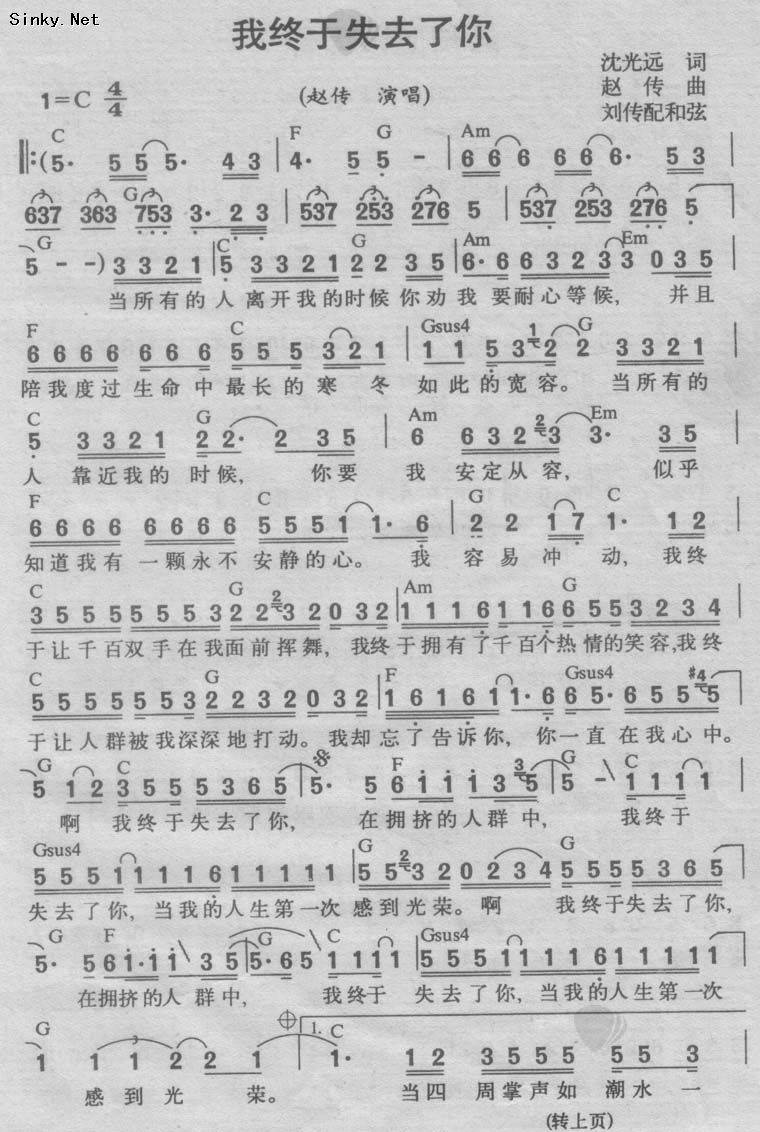 Sinky.Net
我终于失去了你
沈光远 词
1=C 4/4 (赵传 演唱) 赵传 曲
刘传配和弦
C F G Am
‖:(5· 5 5 5· 4 3 | 4· 5 5 - | 6 6 6 6 6 6· 5 3 |
G
637 363 753 3· 2 3 | 537 253 276 5 | 537 253 276 5
G C G Am Em
5 - -) 3 3 2 1 | 5 3 3 2 1 2 2 3 5 | 6· 6 6 3 2 3 3 0 3 5 |
当所有的人 离开我的时候你劝我 要耐心等候， 并且
F C Gsus4 G
6 6 6 6 6 6 6 5 5 5 3 2 1 | 1 1 5 3 2 2 3 3 2 1 |
陪我度过生命中最长的寒 冬 如此的宽容。 当所有的
C G Am Em
5 3 3 2 1 2 2· 2 3 5 | 6 6 3 2 3 3· 3 5 |
人 靠近我的 时候， 你要 我 安定从容， 似乎
F C G C
6 6 6 6 6 6 6 6 5 5 5 1 1· 6 | 2 2 1 7 1· 1 2 |
知道我有 一颗永不 安静的心。 我 容易冲 动，我终
C G Am G
3 5 5 5 5 5 5 3 2 2 3 2 0 3 2 | 1 1 1 6 1 1 6 6 5 5 3 2 3 4 |
于让千百双手在我面前挥舞， 我终于拥有了千百个热情的笑容,我终
C G F Gsus4
5 5 5 5 5 5 3 2 2 3 2 0 3 2 | 1 6 1 6 1 1· 6 6 5· 6 5 5 5
于让人群被我深深地打动。我却忘了告诉你，你一直在我心中。
G C F G C
5 1 2 3 5 5 5 3 6 5 | 5· 5 6 1 1 1 3 5 | 5 - 1 1 1 1 |
啊 我终于失去了你， 在拥挤的人群中， 我终于
Gsus4 G G
5 5 5 1 1 1 1 6 1 1 1 1 1 | 5 5 3 2 0 2 3 4 5 5 5 5 3 6 5
失去了你，当我的人生第一次 感到光荣。啊 我终于失去了你，
G F G C Gsus4
5· 5 6 1· 1 1 3 5 | 5· 6 5 1 1 1 1 | 5 5 5 1 1 1 1 6 1 1 1 1 1
在拥挤的人 群中， 我终于 失去了你，当我的人生第一次
G 1. C
1 1 1 2 2 1 | 1· 1 2 3 5 5 5 5 5 3
感到光 荣。 当四 周掌声如 潮水一
(转上页)